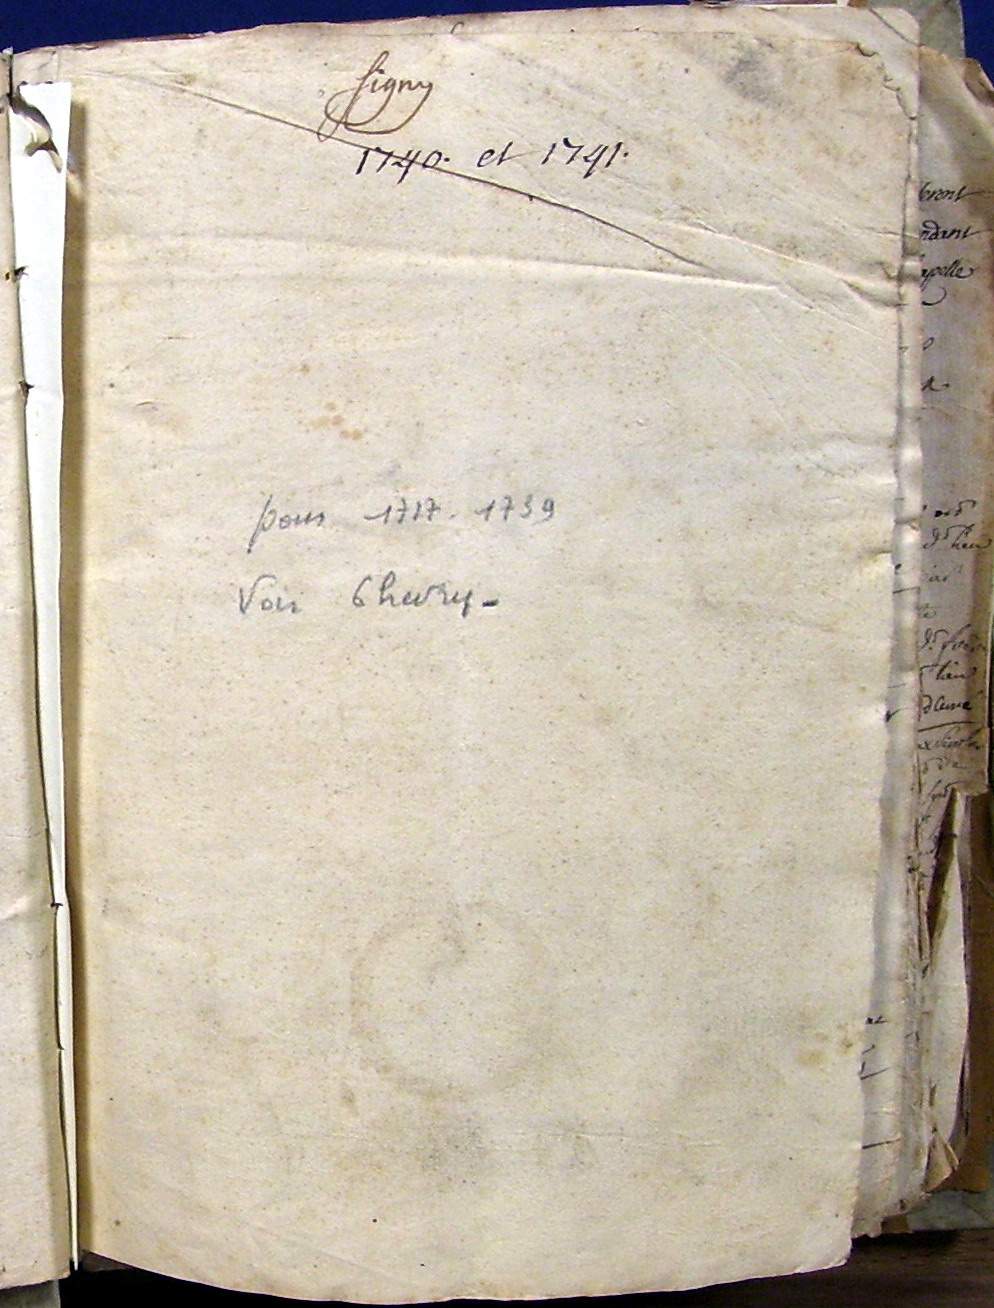 Signy
1740. et 1741.
pour 1717-1739
Voir Chevry-